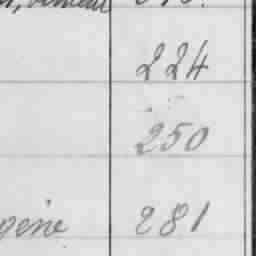 224
250
gène 281